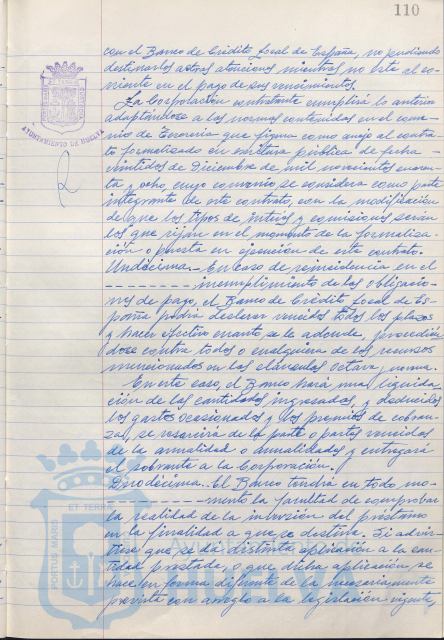 110
con el Banco de Crédito Local de España, no pudiendo
destinarlos a otras atenciones mientras no esté al co-
rriente en el pago de sus vencimientos.
La Corporación contratante cumplirá lo anterior
adaptándose a las normas contenidas en el conve-
nio de Tesorería que figura como anejo al contra-
to formalizado en escritura pública de fecha
veintidos de Diciembre de mil novecientos cuaren-
ta y ocho, cuyo convenio se considera como parte
integrante de este contrato, con la modificación
de que los tipos de interés y comisiones serán
los que rijan en el momento de la formaliza-
ción o puesta en ejecución de este contrato.
Undécima.- En caso de reincidencia en el
incumplimiento de las obligacio-
nes de pago, el Banco de Crédito Local de Es-
paña podrá declarar vencidos todos los plazos
y hacer efectivo cuanto se le adeude, procedien-
dose contra todos o cualquiera de los recursos
mencionados en las cláusulas octava y novena.
En este caso, el Banco hará una liquida-
ción de las cantidades ingresadas, y deducidos
los gastos ocasionados y los premios de cobran-
za, se resarcirá de la parte o partes vencidas
de la anualidad o anualidades y entregará
el sobrante a la Corporación.
Duodécima.- El Banco tendrá en todo mo-
mento la facultad de comprobar
la realidad de la inversión del préstamo
en la finalidad a que se destina. Si advir-
tiese que se da distinta aplicación a la can-
tidad prestada, o que dicha aplicación se
hace en forma diferente de la necesariamente
prevista con arreglo a la legislación vigente,
AYUNTAMIENTO DE HUELVA
PORTUS MARIS ET TERRAE